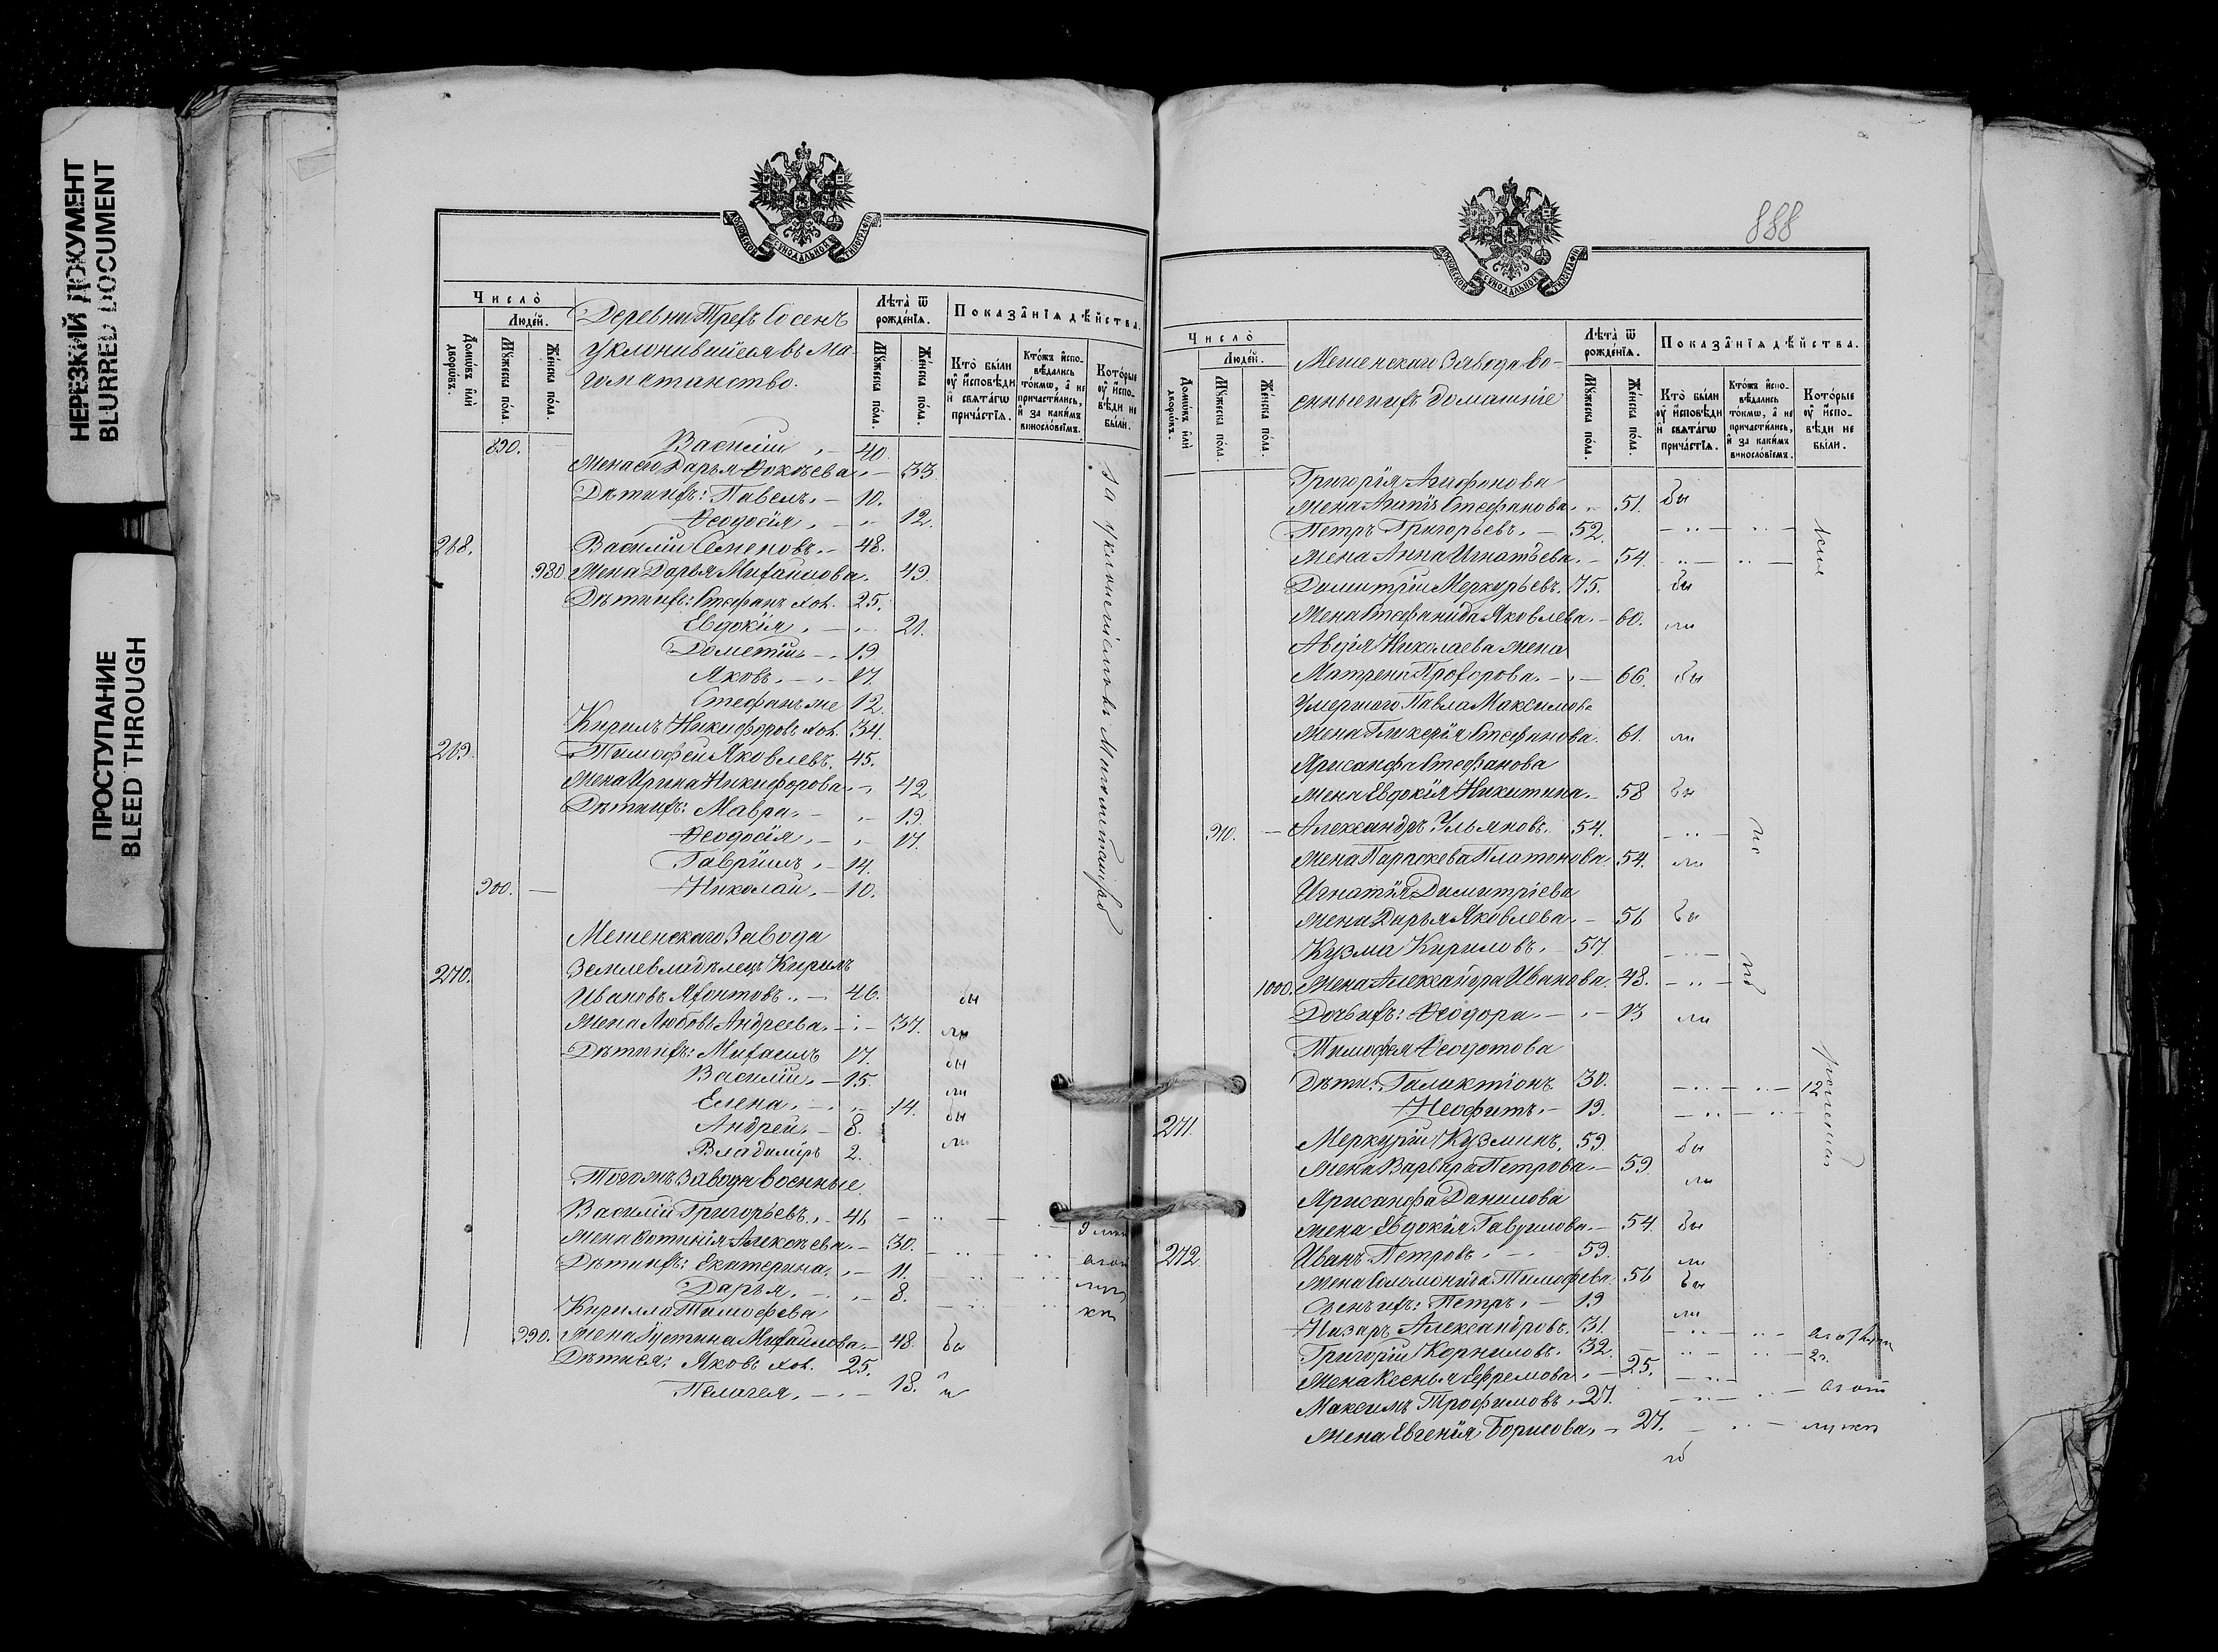 НЕРЕЗКИЙ ДОКУМЕНТ
BLURRED DOCUMENT
ПРОСТУПАНИЕ
BLEED THROUGH
МОСКОВСКОЙ СѴНОДАЛЬНОЙ ТИПОГРАФІИ
Число̀
Люде́й.
Домѡ́въ и҆лѝ дворѡ́въ.
Мꙋ́жеска по́ла.
Же́нска по́ла.
Деревни Трехъ Сосенъ
уклонившіеся въ Ма-
гометанство.
Лѣта̀ ѿ рожде́нїѧ.
Мꙋ́жеска по́ла.
Же́нска по́ла.
Показа̂нїѧ дѣ́йства.
Кто̀ бы́ли оу҆ и҆́сповѣди и҆ свѧта́гѡ причⷭа́стїѧ.
Кто́жъ и҆спо-вѣ́дались то́кмѡ, а҆ не причасти́лись, и҆ за каки́мъ винослові́емъ.
Кото́рые оу҆ и҆спо-вѣди не бы́ли.
890. Василій 40.
Жена его Дарья Фокѣева 33
Дѣти ихъ: Павелъ 10.
Ѳеодосія 12.
268. Василій Семеновъ 48.
980. Жена Дарья Михаилова 49
Дѣти ихъ: Стефанъ хол. 25.
Евдокія 21.
Дометій 19
Яковъ 17.
Стефанъ же 12.
Кирилъ Никифоровъ хол. 34.
269. Тимофей Яковлевъ 45.
Жена Ирина Никифорова 42
Дѣти ихъ: Мавра 19.
Ѳеодосія 17.
Гавріилъ 14.
900. Николай 10.
Мешенскаго Завода
270. Землевладѣлецъ Кирилъ
Ивановъ Яхонтовъ 46. бы
Жена Любовь Андреева 37. ли
Дѣти ихъ: Михаилъ 17. бы
Василій 15. ли
Елена 14. бы
Андрей 8. ли
Владиміръ 2.
Того жъ Завода военные
Василій Григорьевъ 46
Жена Фотинія Алексѣева 30.
Дѣти ихъ: Екатерина 11.
Дарья 8.
Кирилла Тимофѣева
990. Жена Устинья Михаилова 48. бы
Дѣти ея: Яковъ хол. 25.
Пелагея 18. ли
За уклоненіемъ въ Магометанство
888
МОСКОВСКОЙ СѴНОДАЛЬНОЙ ТИПОГРАФІИ
Число̀
Люде́й.
Домѡ́въ и҆лѝ дворѡ́въ.
Мꙋ́жеска по́ла.
Же́нска по́ла.
Мешенскаго Завода во-
енные и ихъ домашніе
Лѣта̀ ѿ рожде́нїѧ.
Мꙋ́жеска по́ла.
Же́нска по́ла.
Показа̂нїѧ дѣ́йства.
Кто̀ бы́ли оу҆ и҆́сповѣди и҆ свѧта́гѡ прича́стїѧ.
Кто́жъ и҆спо-вѣ́дались то́кмѡ, а҆ не причасти́лись, и҆ за каки́мъ винослові́емъ.
Кото́рые оу҆ и҆спо-вѣди не бы́ли.
Григорія Агафонова
Жена Агапія Стефанова 51. бы
Петръ Григорьевъ 52.
Жена Анна Игнатьева 54.
Димитрій Меркурьевъ 75. бы
Жена Стефанида Яковлева 60. ли
Авдія Николаева жена
Матрена Прохорова 66. бы
Умершаго Павла Максимова
Жена Гликерія Стефанова 61. ли
Хрисанфа Стефанова
Жена Евдокія Никитина 58 бы
910. Александръ Ульяновъ 54.
Жена Параскева Платонова 54. ли
Игнатія Димитріева
Жена Дарья Яковлева 56 бы
Кузма Кириловъ 57.
1000. Жена Александра Иванова 48.
Дочь ихъ: Ѳеодора 13 ли
Тимофея Ѳеодотова
Дѣти: Галактіонъ 30. 12
Неофитъ 19.
271. Меркурій Кузминъ 59. бы
Жена Варвара Петрова 59. ли
Хрисанфа Данилова
Жена Евдокія Гаврилова 54 бы
272. Иванъ Петровъ 59. ли
Жена Соломонида Тимофѣева 56 бы
Сынъ ихъ: Петръ 19 ли
Назаръ Александровъ 31.
Григорій Корниловъ 32.
Жена Ксенья Ефремова 25.
Максимъ Трофимовъ 27.
Жена Евгенія Борисова 27.